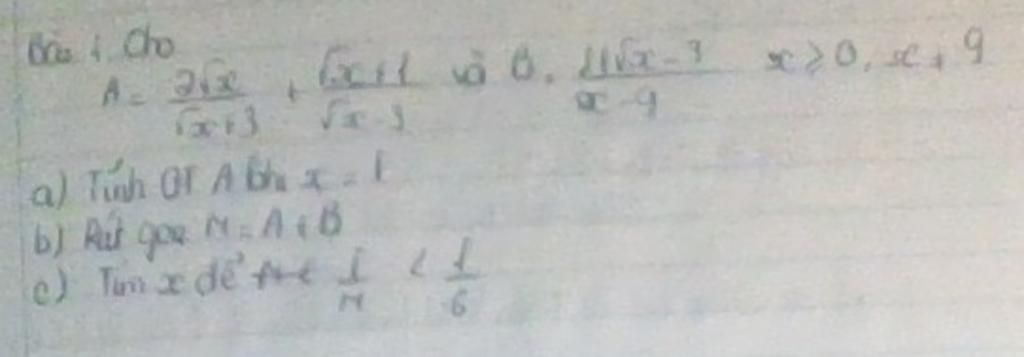 Bài 1 Cho
A = 2√x / √x+3 + √x+1 / √x-3 và B = 11√x-3 / x-9 x ≥ 0, x ≠ 9
a) Tính GT A khi x = 1
b) Rút gọn M = A + B
c) Tìm x để 1/M < 1/6